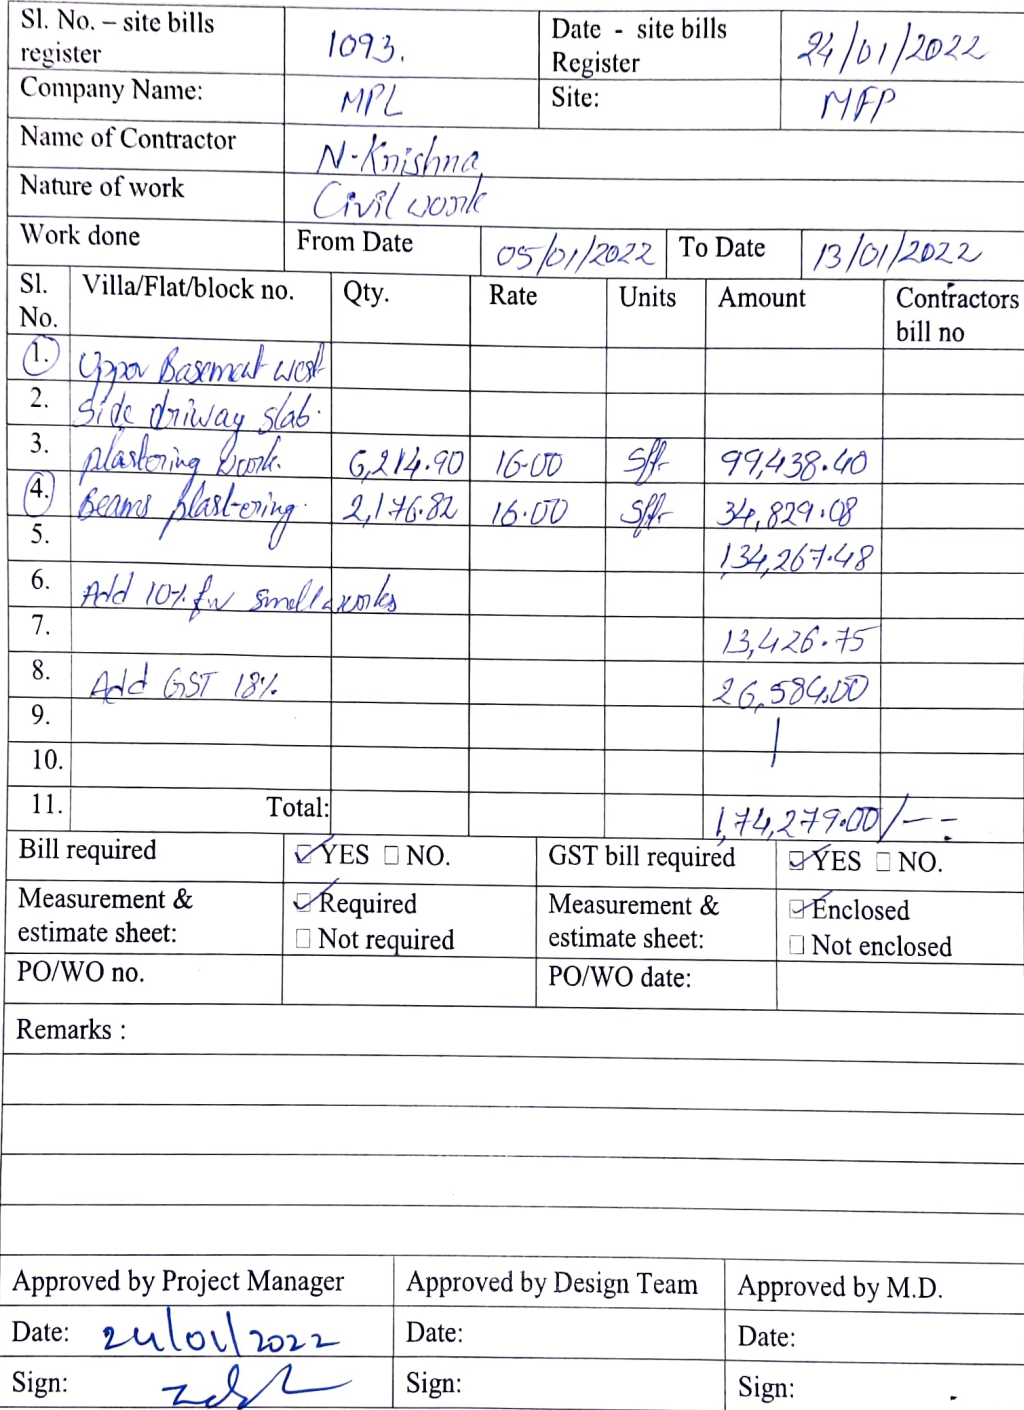 Sl. No. – site bills register 1093. Date - site bills Register 24/01/2022
Company Name: MPL Site: MFP
Name of Contractor N-Krishna
Nature of work Civil work
Work done From Date 05/01/2022 To Date 13/01/2022
Sl. No. Villa/Flat/block no. Qty. Rate Units Amount Contractors bill no
1. Upper Basement west
2. Side driway slab.
3. plastering work. 6,214.90 16.00 Sft 99,438.40
4. Beams plastering. 2,176.82 16.00 Sft 34,829.08
5. 134,267.48
6. Add 10% for small works
7. 13,426.75
8. Add GST 18% 26,584.00
9.
10.
11. Total: 1,74,279.00/--
Bill required YES NO. GST bill required YES NO.
Measurement & estimate sheet: Required Not required Measurement & estimate sheet: Enclosed Not enclosed
PO/WO no. PO/WO date:
Remarks :
Approved by Project Manager Approved by Design Team Approved by M.D.
Date: 24/01/2022 Date: Date:
Sign: Sign: Sign: